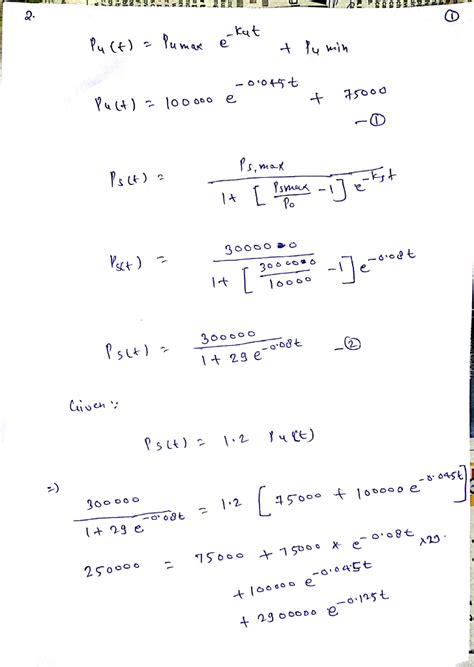 2. ①
Pu(t) = Pumax e^-kut + Pu min
Pu(t) = 100000 e^-0.045t + 75000 -①
Ps(t) = Ps,max / 1+ [Psmax/Po -1] e^-kst
Ps(t) = 300000 / 1+ [300000/10000 -1] e^-0.08t
Ps(t) = 300000 / 1+29 e^-0.08t -②
Given :
Ps(t) = 1.2 Pu(t)
=) 300000 / 1+29 e^-0.08t = 1.2 [75000 + 100000 e^-0.045t]
250000 = 75000 + 75000 * e^-0.08t x29.
+ 100000 e^-0.045t
+ 2900000 e^-0.125t